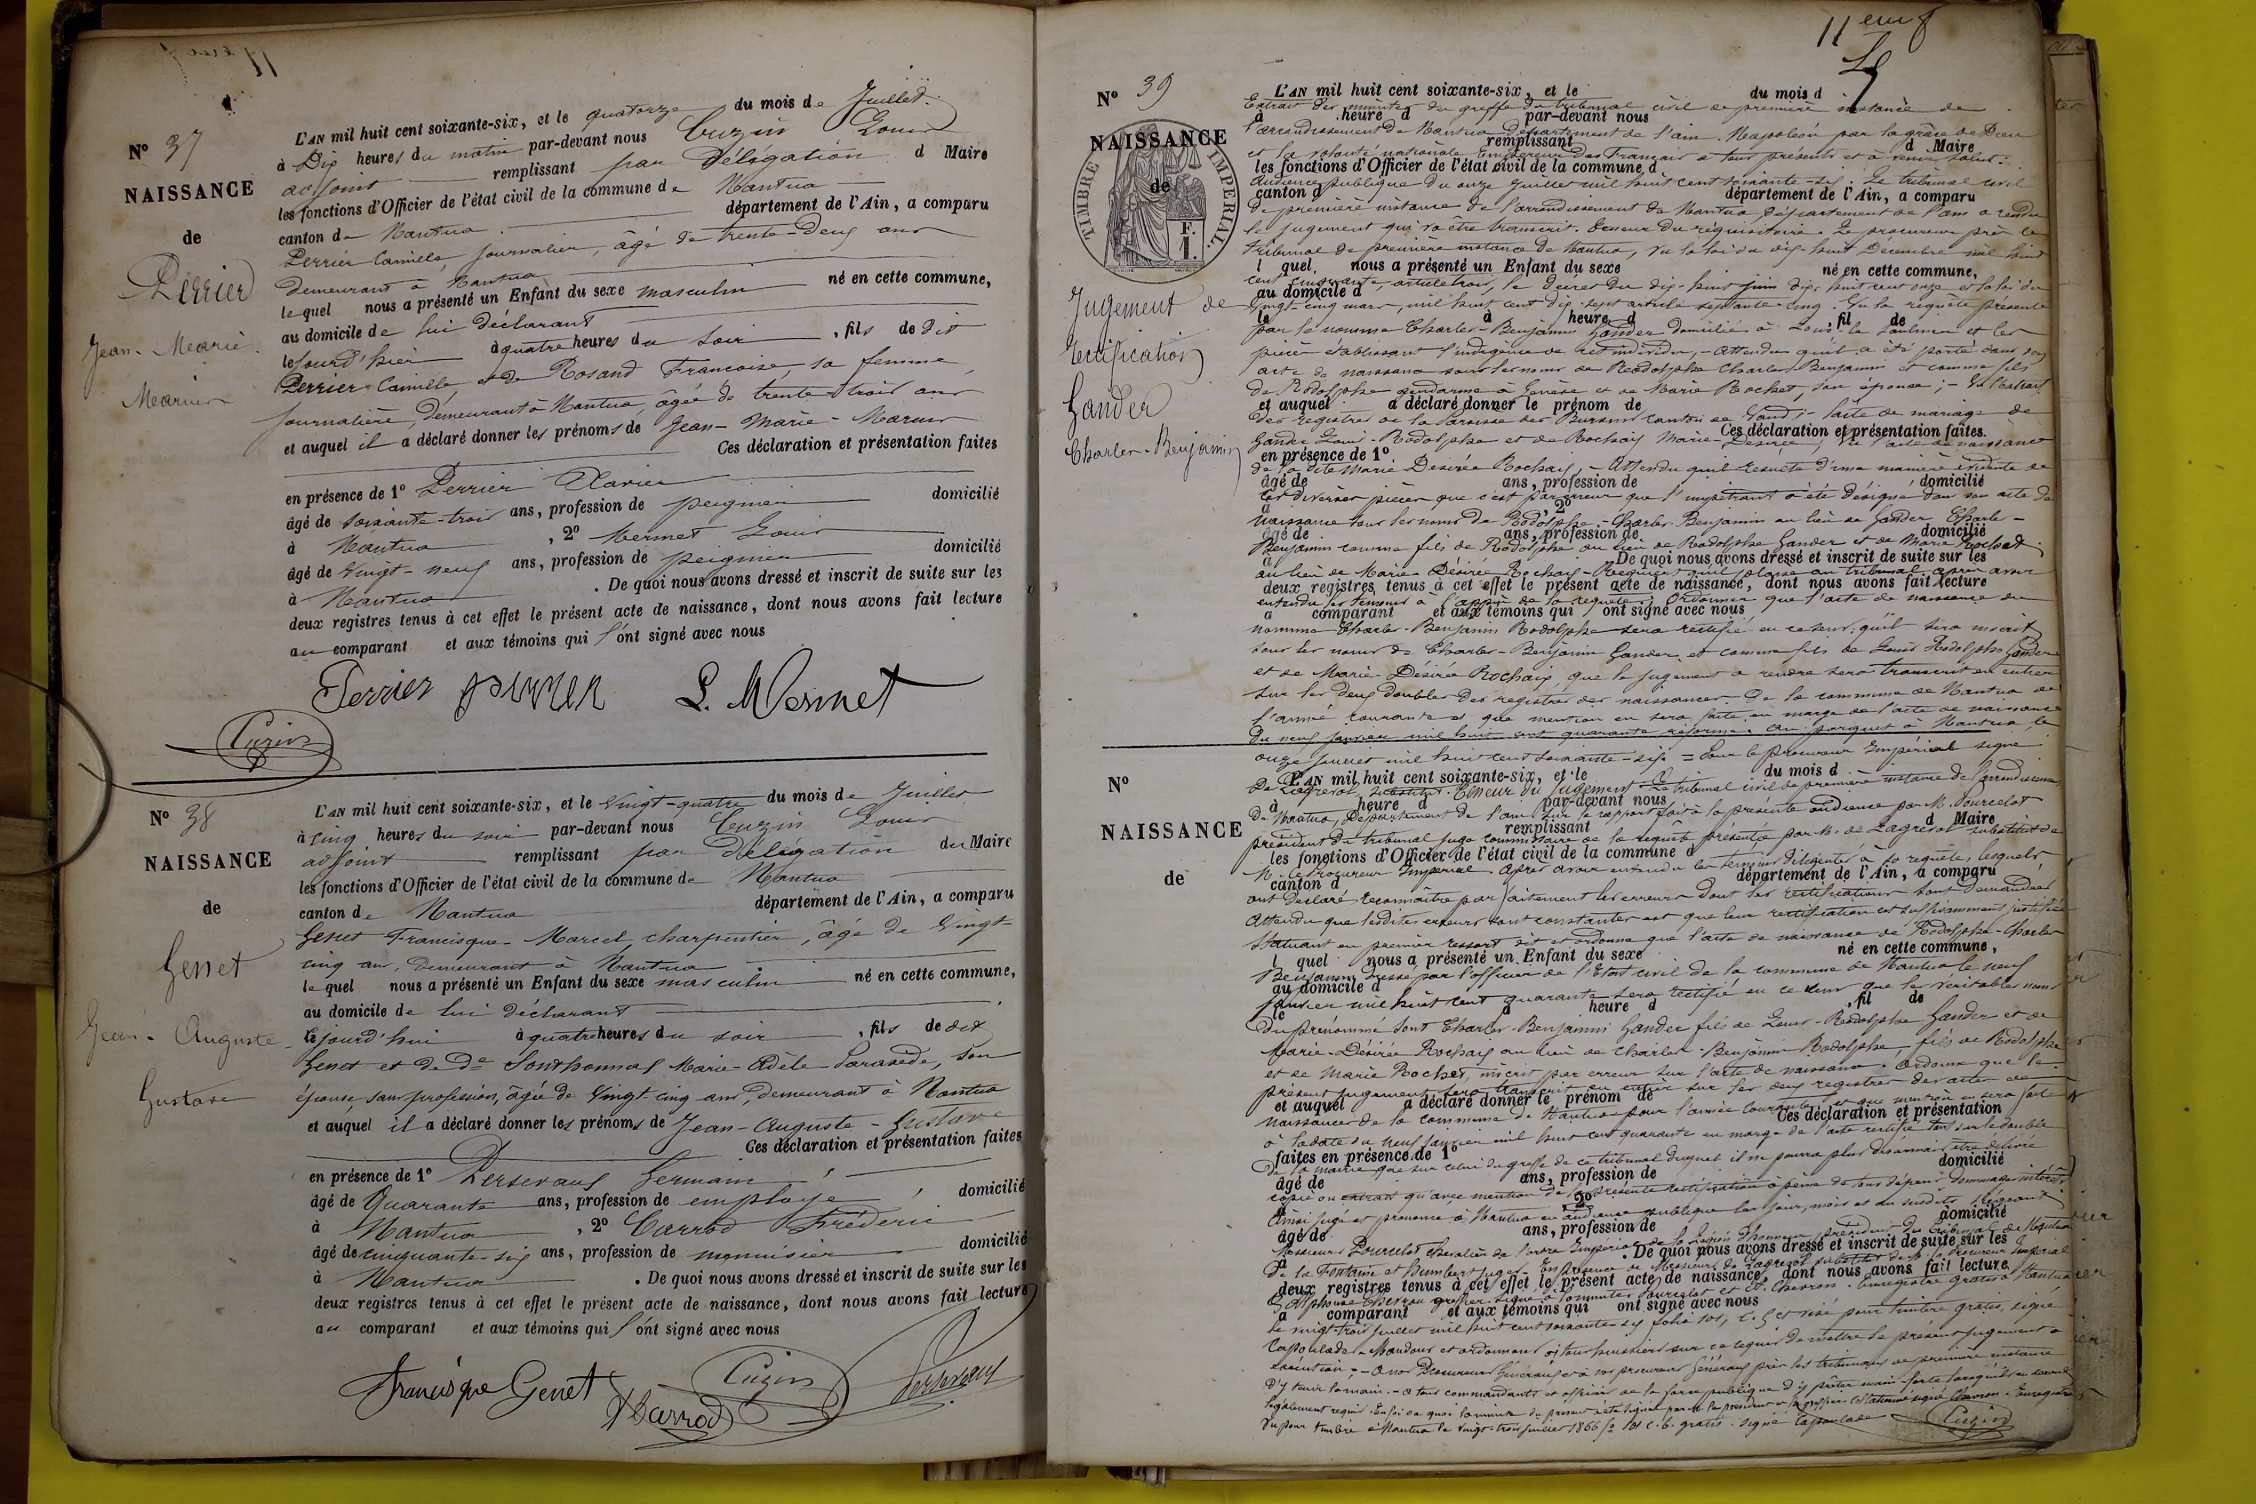 N° 37
NAISSANCE
de
Perrier
Jean-Marie
Marius
L'AN mil huit cent soixante-six, et le quatorze du mois de Juillet
à Dix heures du matin par-devant nous Cuzin Louis
adjoint remplissant par Délégation d Maire
les fonctions d'Officier de l'état civil de la commune de Nantua
canton de Nantua département de l'Ain, a comparu
Perrier Camille, journalier, âgé de trente-deux ans
demeurant à Nantua
lequel nous a présenté un Enfant du sexe masculin né en cette commune,
au domicile de lui déclarant
le jourd'hier à quatre heures du soir, fils de dit
Perrier Camille et de Rosand Francoise, sa femme
journalière, demeurant à Nantua, âgée de trente-trois ans
et auquel il a déclaré donner les prénoms de Jean-Marie-Marius
Ces déclaration et présentation faites
en présence de 1° Perrier Xavier
âgé de soixante-trois ans, profession de peignier domicilié
à Nantua, 2° Mermet Louis
âgé de Vingt-neuf ans, profession de peignier domicilié
à Nantua. De quoi nous avons dressé et inscrit de suite sur les
deux registres tenus à cet effet le présent acte de naissance, dont nous avons fait lecture
au comparant et aux témoins qui l'ont signé avec nous
Perrier perrier L. Mermet
Cuzin
N° 38
NAISSANCE
de
Genet
Jean-Auguste
Gustave
L'AN mil huit cent soixante-six, et le Vingt-quatre du mois de Juillet
à cinq heures du soir par-devant nous Cuzin Louis
adjoint remplissant par Délégation du Maire
les fonctions d'Officier de l'état civil de la commune de Nantua
canton de Nantua département de l'Ain, a comparu
Genet Francisque-Marcel, charpentier, âgé de Vingt-
cinq ans, demeurant à Nantua
lequel nous a présenté un Enfant du sexe masculin né en cette commune,
au domicile de lui déclarant
le jourd'hui à quatre heures du soir, fils de dit
Genet et de De Sonthonnax Marie-Adèle, son
épouse, sans profession, âgée de Vingt cinq ans, demeurant à Nantua
et auquel il a déclaré donner les prénoms de Jean-Auguste-Gustave
Ces déclaration et présentation faites
en présence de 1° Perseraux Germain
âgé de Quarante ans, profession de employé domicilié
à Nantua, 2° Carrod Fréderic
âgé de cinquante-six ans, profession de menuisier domicilié
à Nantua. De quoi nous avons dressé et inscrit de suite sur les
deux registres tenus à cet effet le présent acte de naissance, dont nous avons fait lecture
au comparant et aux témoins qui l'ont signé avec nous
Francisque Genet Carrod Cuzin Perseraux
N° 39
NAISSANCE
de
TIMBRE IMPÉRIAL
Jugement de
rectification
Gander
Charles-Benjamin
L'AN mil huit cent soixante-six, et le du mois d
Extrait des minutes du greffe du tribunal civil de première instance de
à heure d par-devant nous
l'arrondissement de Nantua département de l'ain. Napoléon par la grâce de Dieu
remplissant d Maire
et la volonté nationale Empereur des Français a tous présents et à venir salut:
les fonctions d'Officier de l'état civil de la commune d
Audience publique du onze Juillet mil huit cent soixante-six. Le tribunal civil
canton d département de l'Ain, a comparu
de première instance de l'arrondissement de Nantua, département de l'ain a rendu
le jugement qui va être transcrit. Teneur du réquisitoire. Le procureur près le
tribunal de première instance de Nantua, Vu la loi du dix-huit Décembre mil huit
l quel nous a présenté un Enfant du sexe né en cette commune,
cent cinquante, article trois, le décret du dix-huit juin dix huit cent onze et la loi du
au domicile d
Vingt-cinq mars, mil huit cent dix-sept article soixante-cinq. Vu la requête présentée
le à heure d fil de
par le nommé Charles-Benjamin Gander domicilié à Lons-le-Saulnier et les
pièces établissant l'indigence de cet individu, - Attendu qu'il a été porté dans son
acte de naissance sous les noms de Rodolphe Charles-Benjamin et comme fils
de Rodolphe gendarme à Genève et de Marie Rochet, son épouse; - Vu l'extrait
et auquel a déclaré donner le prénom de
des registres de la Paroisse de Bursins canton de Vaud; - l'acte de mariage de
Ces déclaration et présentation faites.
Gander Louis-Rodolphe et de Rochaix Marie-Désirée; Vu l'acte de naissance
en présence de 1°
de la dite Marie Désirée Rochaix, - Attendu qu'il résulte d'une manière évidente de
âgé de ans, profession de domicilié
ces diverses pièces que c'est par erreur que l'impétrant a été désigné dans son acte de
à 2°
naissance sous les noms de Rodolphe-Charles-Benjamin au lieu de Gander Charles-
âgé de ans, profession de domicilié
Benjamin comme fils de Rodolphe au lieu de Rodolphe Gander et de Marie Rochet
à De quoi nous avons dressé et inscrit de suite sur les
au lieu de Marie-Désirée Rochaix - Requiert qu'il plaise au tribunal après avoir
deux registres tenus à cet effet le présent acte de naissance, dont nous avons fait lecture
entendu les témoins à l'appui de la requête; ordonner que l'acte de naissance du
a comparant et aux témoins qui ont signé avec nous
nommé Charles-Benjamin Rodolphe sera rectifié en ce sens qu'il sera inscrit
sous les noms de Charles-Benjamin Gander et comme fils de Louis Rodolphe Gander
et de Marie-Désirée Rochaix, que le jugement à rendre sera transcrit en entier
sur les deux doubles des registres des naissances de la commune de Nantua de
l'année courante et que mention en sera faite en marge de l'acte de naissance
du neuf janvier mil huit cent quarante réformé. Au parquet à Nantua, le
onze juillet mil huit cent soixante-six = Pour le procureur Impérial signé
N°
NAISSANCE
de
L'AN mil huit cent soixante-six, et le du mois d
De Lagrevol substitut. Teneur du jugement Le tribunal civil de première instance de l'arrondissement
à heure d par-devant nous
de Nantua, Département de l'ain sur le rapport fait à la présente audience par M. Pourcelot
remplissant d Maire
président du tribunal juge commissaire de la requête présentée par M. de Lagrevol substitut de
les fonctions d'Officier de l'état civil de la commune d
M. le Procureur Impérial après avoir entendu les témoins à sa requête, lesquels
canton d département de l'Ain, a comparu
ont déclaré reconnaître parfaitement les erreurs dont les rectifications sont demandées
Attendu que lesdites erreurs sont constantes et que leur rectification est suffisamment justifiée
Statuant en premier ressort dit et ordonne que l'acte de naissance de Rodolphe-Charles
l quel nous a présenté un Enfant du sexe né en cette commune,
Benjamin dressé par l'officier de l'Etat civil de la commune de Nantua le neuf
au domicile d
janvier mil huit cent quarante sera rectifié en ce sens que les véritables noms
le à heure d, fil de
du prénommé sont Charles-Benjamin Gander fils de Louis-Rodolphe Gander et de
Marie-Désirée Rochaix au lieu de Charles-Benjamin Rodolphe fils de Rodolphe
et de Marie Rochet, inscrit par erreur sur l'acte de naissance. Ordonne que le
présent jugement sera transcrit en entier sur les deux registres des actes de
et auquel a déclaré donner le prénom de
naissances de la commune de Nantua pour l'année courante et que mention en sera faite
Ces déclaration et présentation
à la date du neuf janvier mil huit cent quarante en marge de l'acte rectifié tant sur le double
faites en présence de 1°
de la mairie que sur celui du greffe de ce tribunal duquel il ne pourra plus désormais être délivré
âgé de ans, profession de domicilié
copie ou extrait qu'avec mention de la présente rectification à peine de tous dépens dommages intérêts
à 2°
Ainsi jugé et prononcé à Nantua en audience publique les jour, mois et an susdits, siégeant
âgé de ans, profession de domicilié
Messieurs Pourcelot chevalier de l'ordre Impérial de la Légion d'honneur, président du tribunal de Nantua
à . De quoi nous avons dressé et inscrit de suite sur les
De la Fontaine et Humbert juges. En présence de Monsieur de Lagrevol substitut de M. le Procureur Impérial
deux registres tenus à cet effet le présent acte de naissance, dont nous avons fait lecture
a comparant et aux témoins qui ont signé avec nous
le vingt-trois juillet mil huit cent soixante-six folio 101, c. 6 et visé pour timbre gratis, signé
Lapoulade. Mandons et ordonnons à tous huissiers sur ce requis de mettre le présent jugement à
exécution; - à nos Procureurs Généraux et à nos procureurs près les tribunaux de première instance
d'y tenir la main. - à tous commandants et officiers de la force publique d'y prêter main-forte lorsqu'ils en seront
légalement requis. En foi de quoi la minute du présent a été signée par M. le président et le greffier
Vu pour timbre à Nantua le vingt-trois juillet 1866 fo 101 c. 6. gratis. Signé Lapoulade
Cuzin